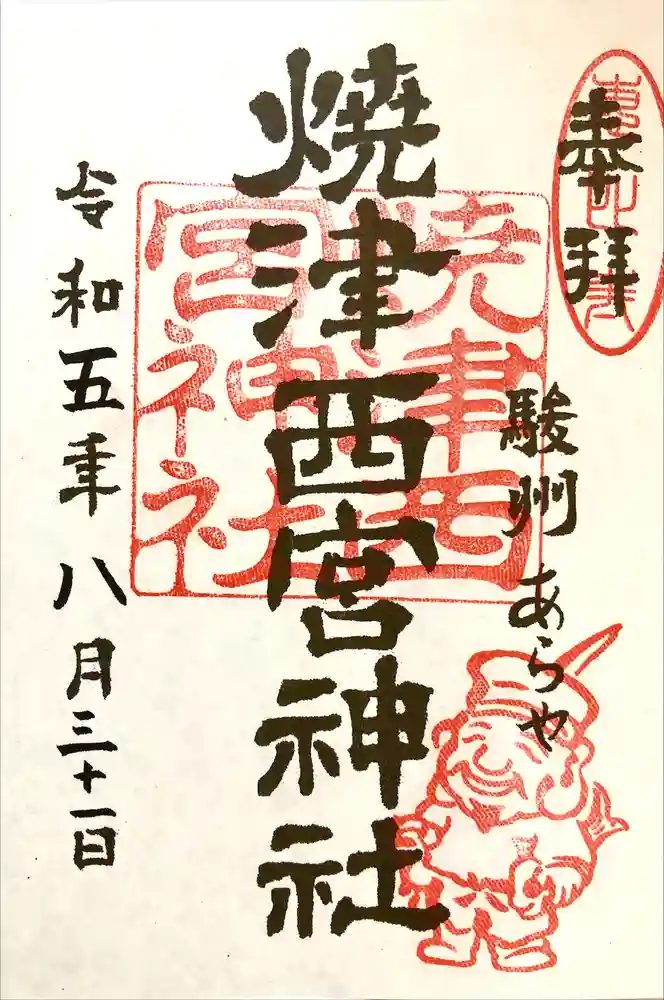 奉拝
駿州あらや
焼津西宮神社
焼津西
宮神社
令和五年八月三十一日